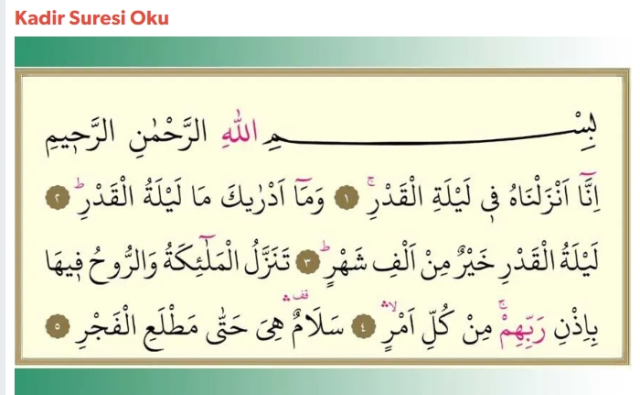 Kadir Suresi Oku
بِسْمِ اللّٰهِ الرَّحْمٰنِ الرَّحٖيمِ
اِنَّٓا اَنْزَلْنَاهُ فٖي لَيْلَةِ الْقَدْرِۚ ﴿١﴾ وَمَٓا اَدْرٰيكَ مَا لَيْلَةُ الْقَدْرِؕ ﴿٢﴾
لَيْلَةُ الْقَدْرِ خَيْرٌ مِنْ اَلْفِ شَهْرٍؕ ﴿٣﴾ تَنَزَّلُ الْمَلٰٓئِكَةُ وَالرُّوحُ فٖيهَا
بِاِذْنِ رَبِّهِمْۚ مِنْ كُلِّ اَمْرٍۙۛ ﴿٤﴾ سَلَامٌࣞۛ هِيَ حَتّٰى مَطْلَعِ الْفَجْرِ ﴿٥﴾